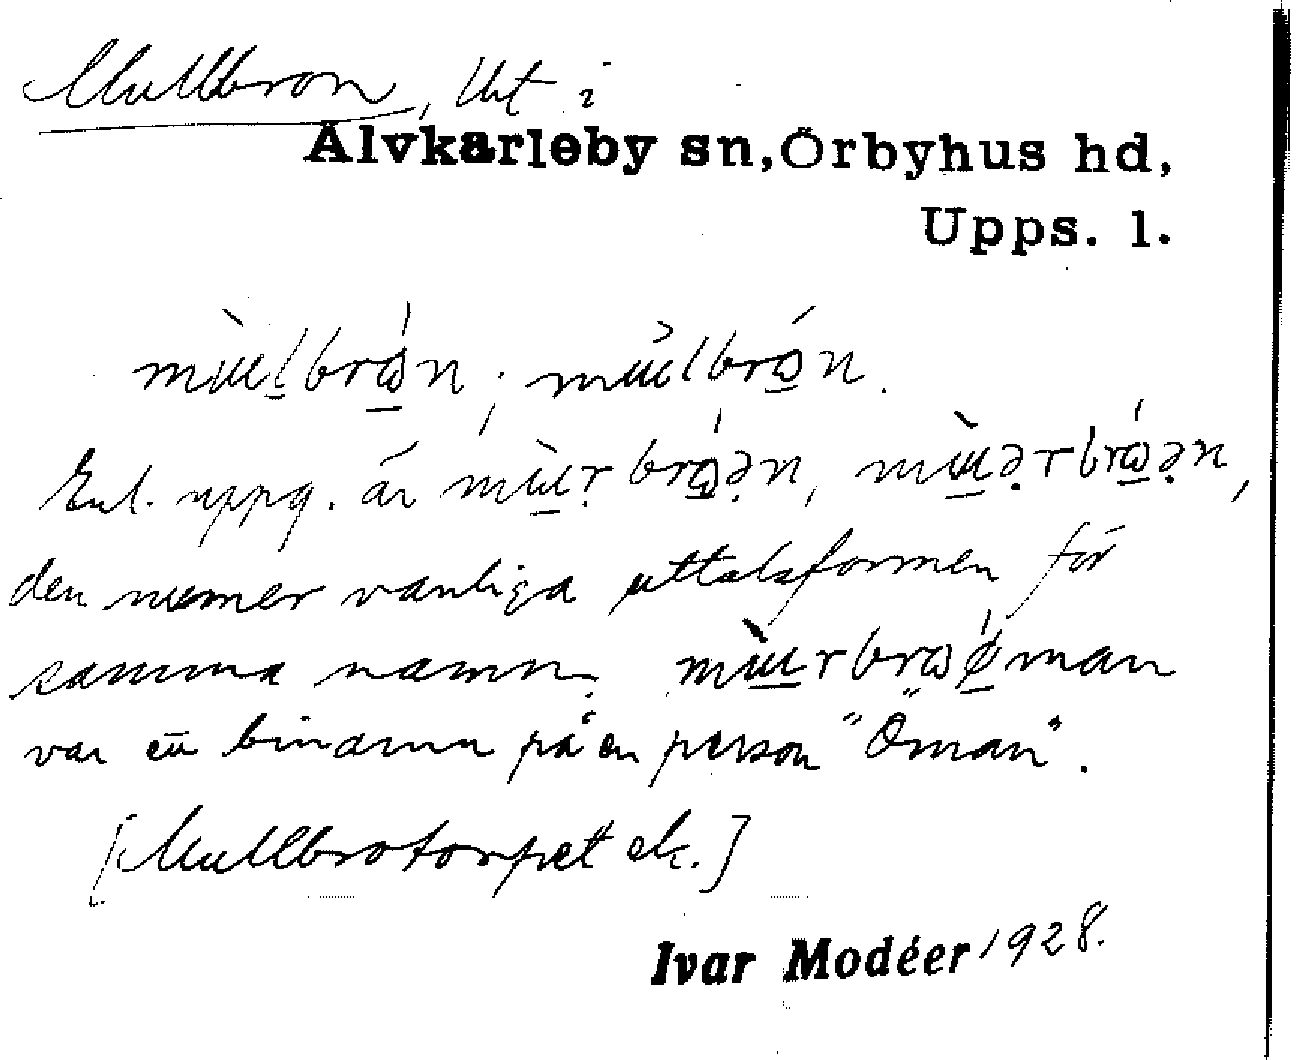 Mullbron, Ut i
Älvkarleby sn, Örbyhus hd,
Upps. l.
mɯ̀lbrɷ́n; mɯ̀lbrɷ́n.
Enl. uppg. är mɯ̀r brɷ́ən, mɯ̀ərbrɷ́ən,
den numer vanliga uttalsformen för
samma namn; mɯ̀rbrɷǿman
var ett binamn på en person "Öman".
[Mullbrotorpet etc.]
Ivar Modéer 1928.